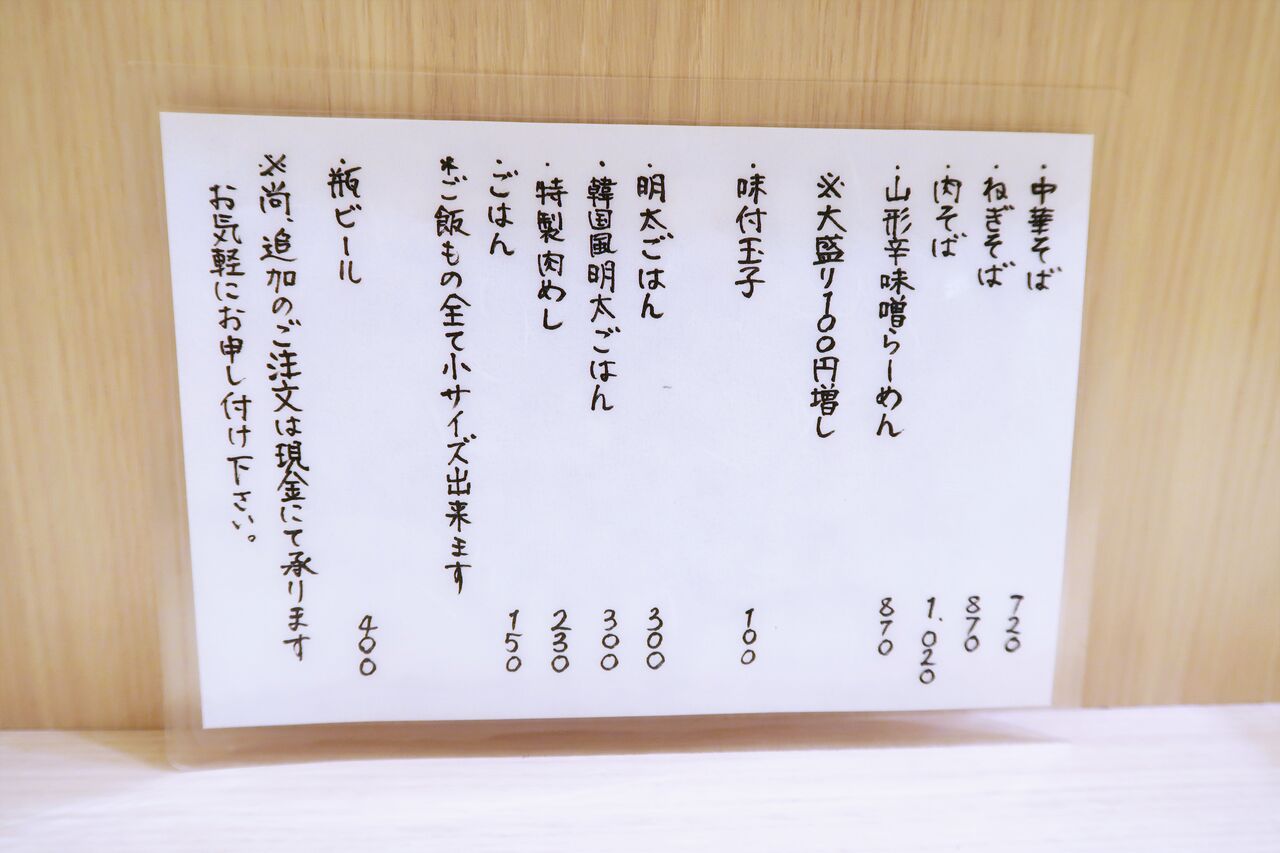 ・中華そば 720
・ねぎそば 870
・肉そば 1.020
・山形辛味噌らーめん 870
※大盛り100円増し
・味付玉子 100
・明太ごはん 300
・韓国風明太ごはん 300
・特製肉めし 230
・ごはん 150
*ご飯もの全て小サイズ出来ます
・瓶ビール 400
※尚、追加のご注文は現金にて承ります
お気軽にお申し付け下さい。